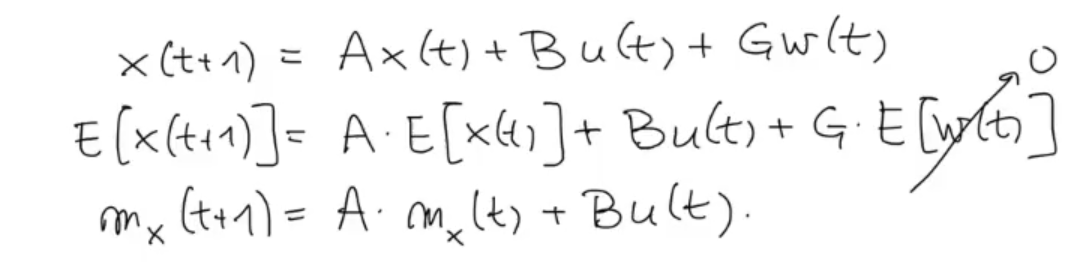 x(t+1) = Ax(t) + Bu(t) + Gw(t)
E[x(t+1)] = A·E[x(t)] + Bu(t) + G·E[w(t)] 0
m_x(t+1) = A·m_x(t) + Bu(t).